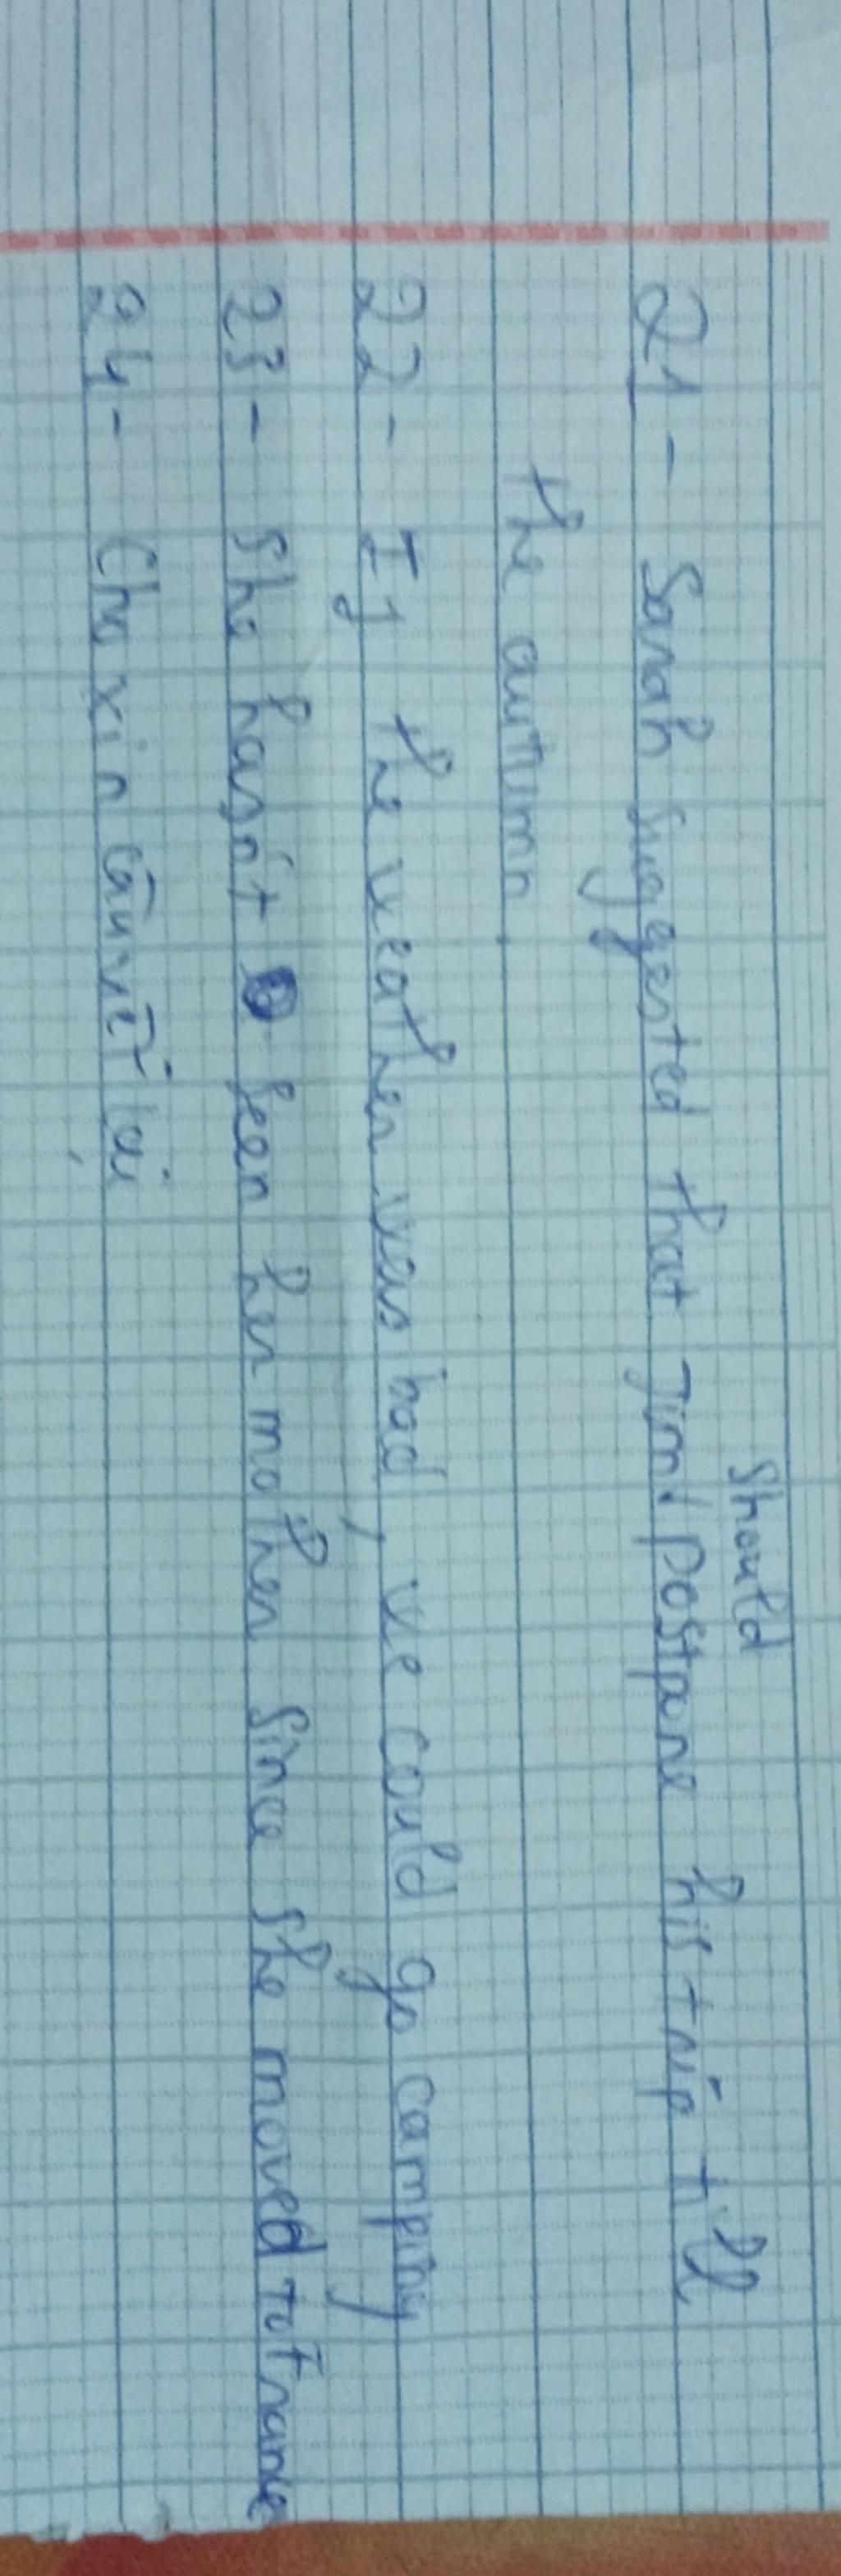 should
21- Sarah suggested that Jim postpone his trip till
the autumn.
22- If the weather was bad, we could go camping
23- She hasn't seen her mother since she moved to France
24- Cho xin câu viết lại